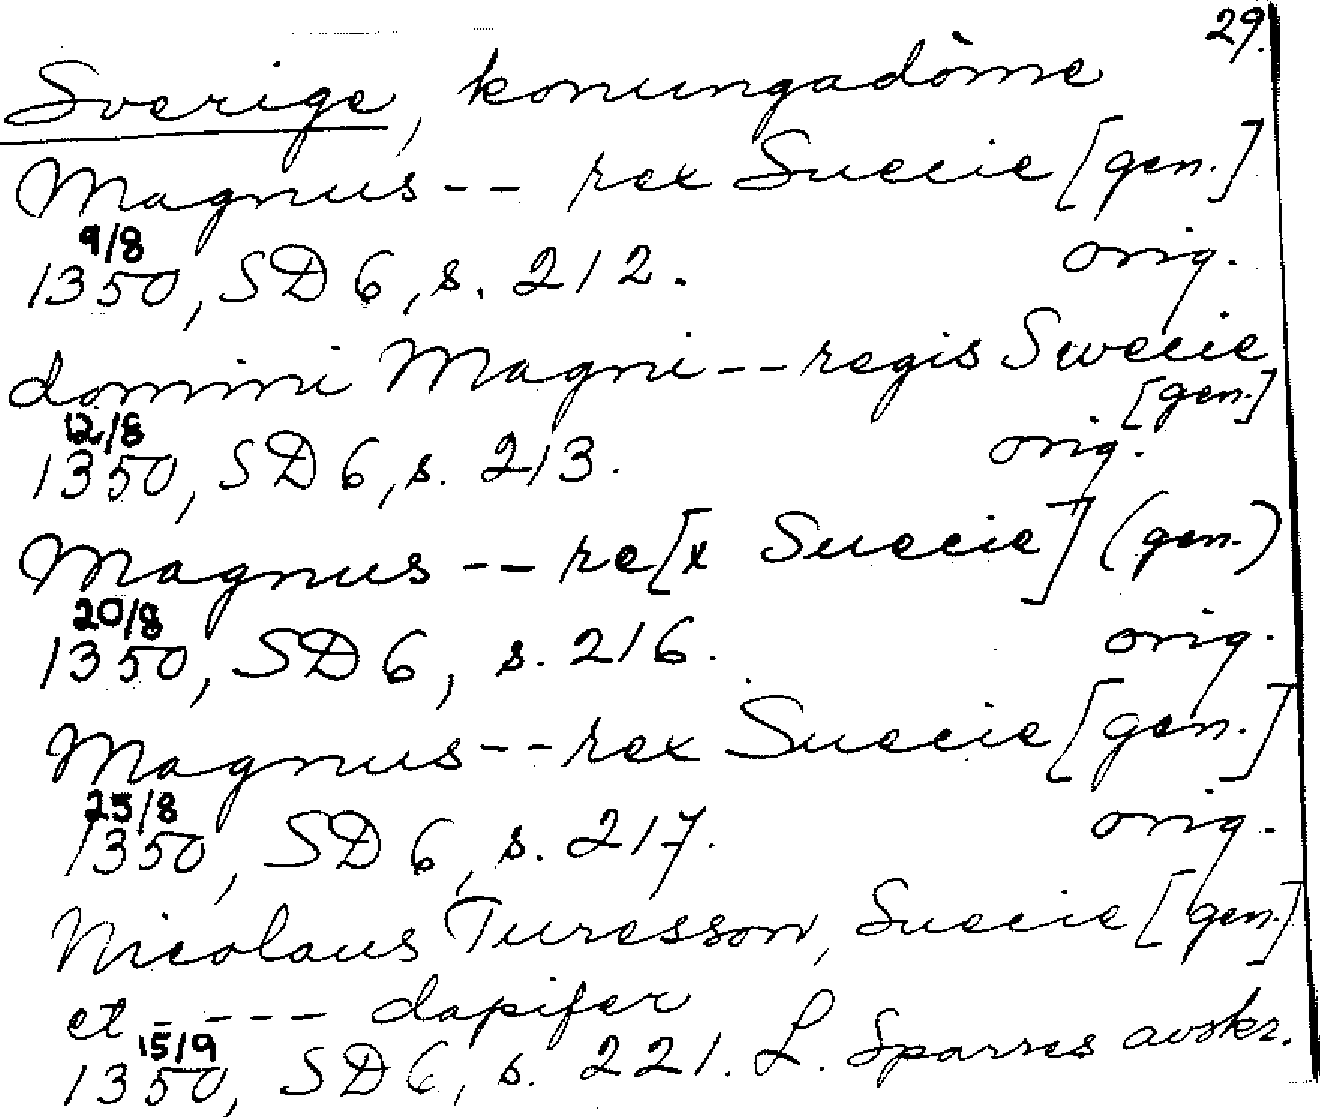 29.
Sverige, konungadöme
Magnus -- rex Suecie [gen.]
9/8
1350, SD 6, s. 212. orig.
domini Magni -- regis Swecie
[gen.]
12/8
1350, SD 6, s. 213. orig.
Magnus -- re[x Suecie] (gen.)
20/8
1350, SD 6, s. 216. orig.
Magnus -- rex Suecie [gen.]
25/8
1350, SD 6, s. 217. orig.
Nicolaus Turesson, Suecie [gen.]
et ---- dapifer
15/9
1350, SD 6, s. 221. L. Sparres avskr.